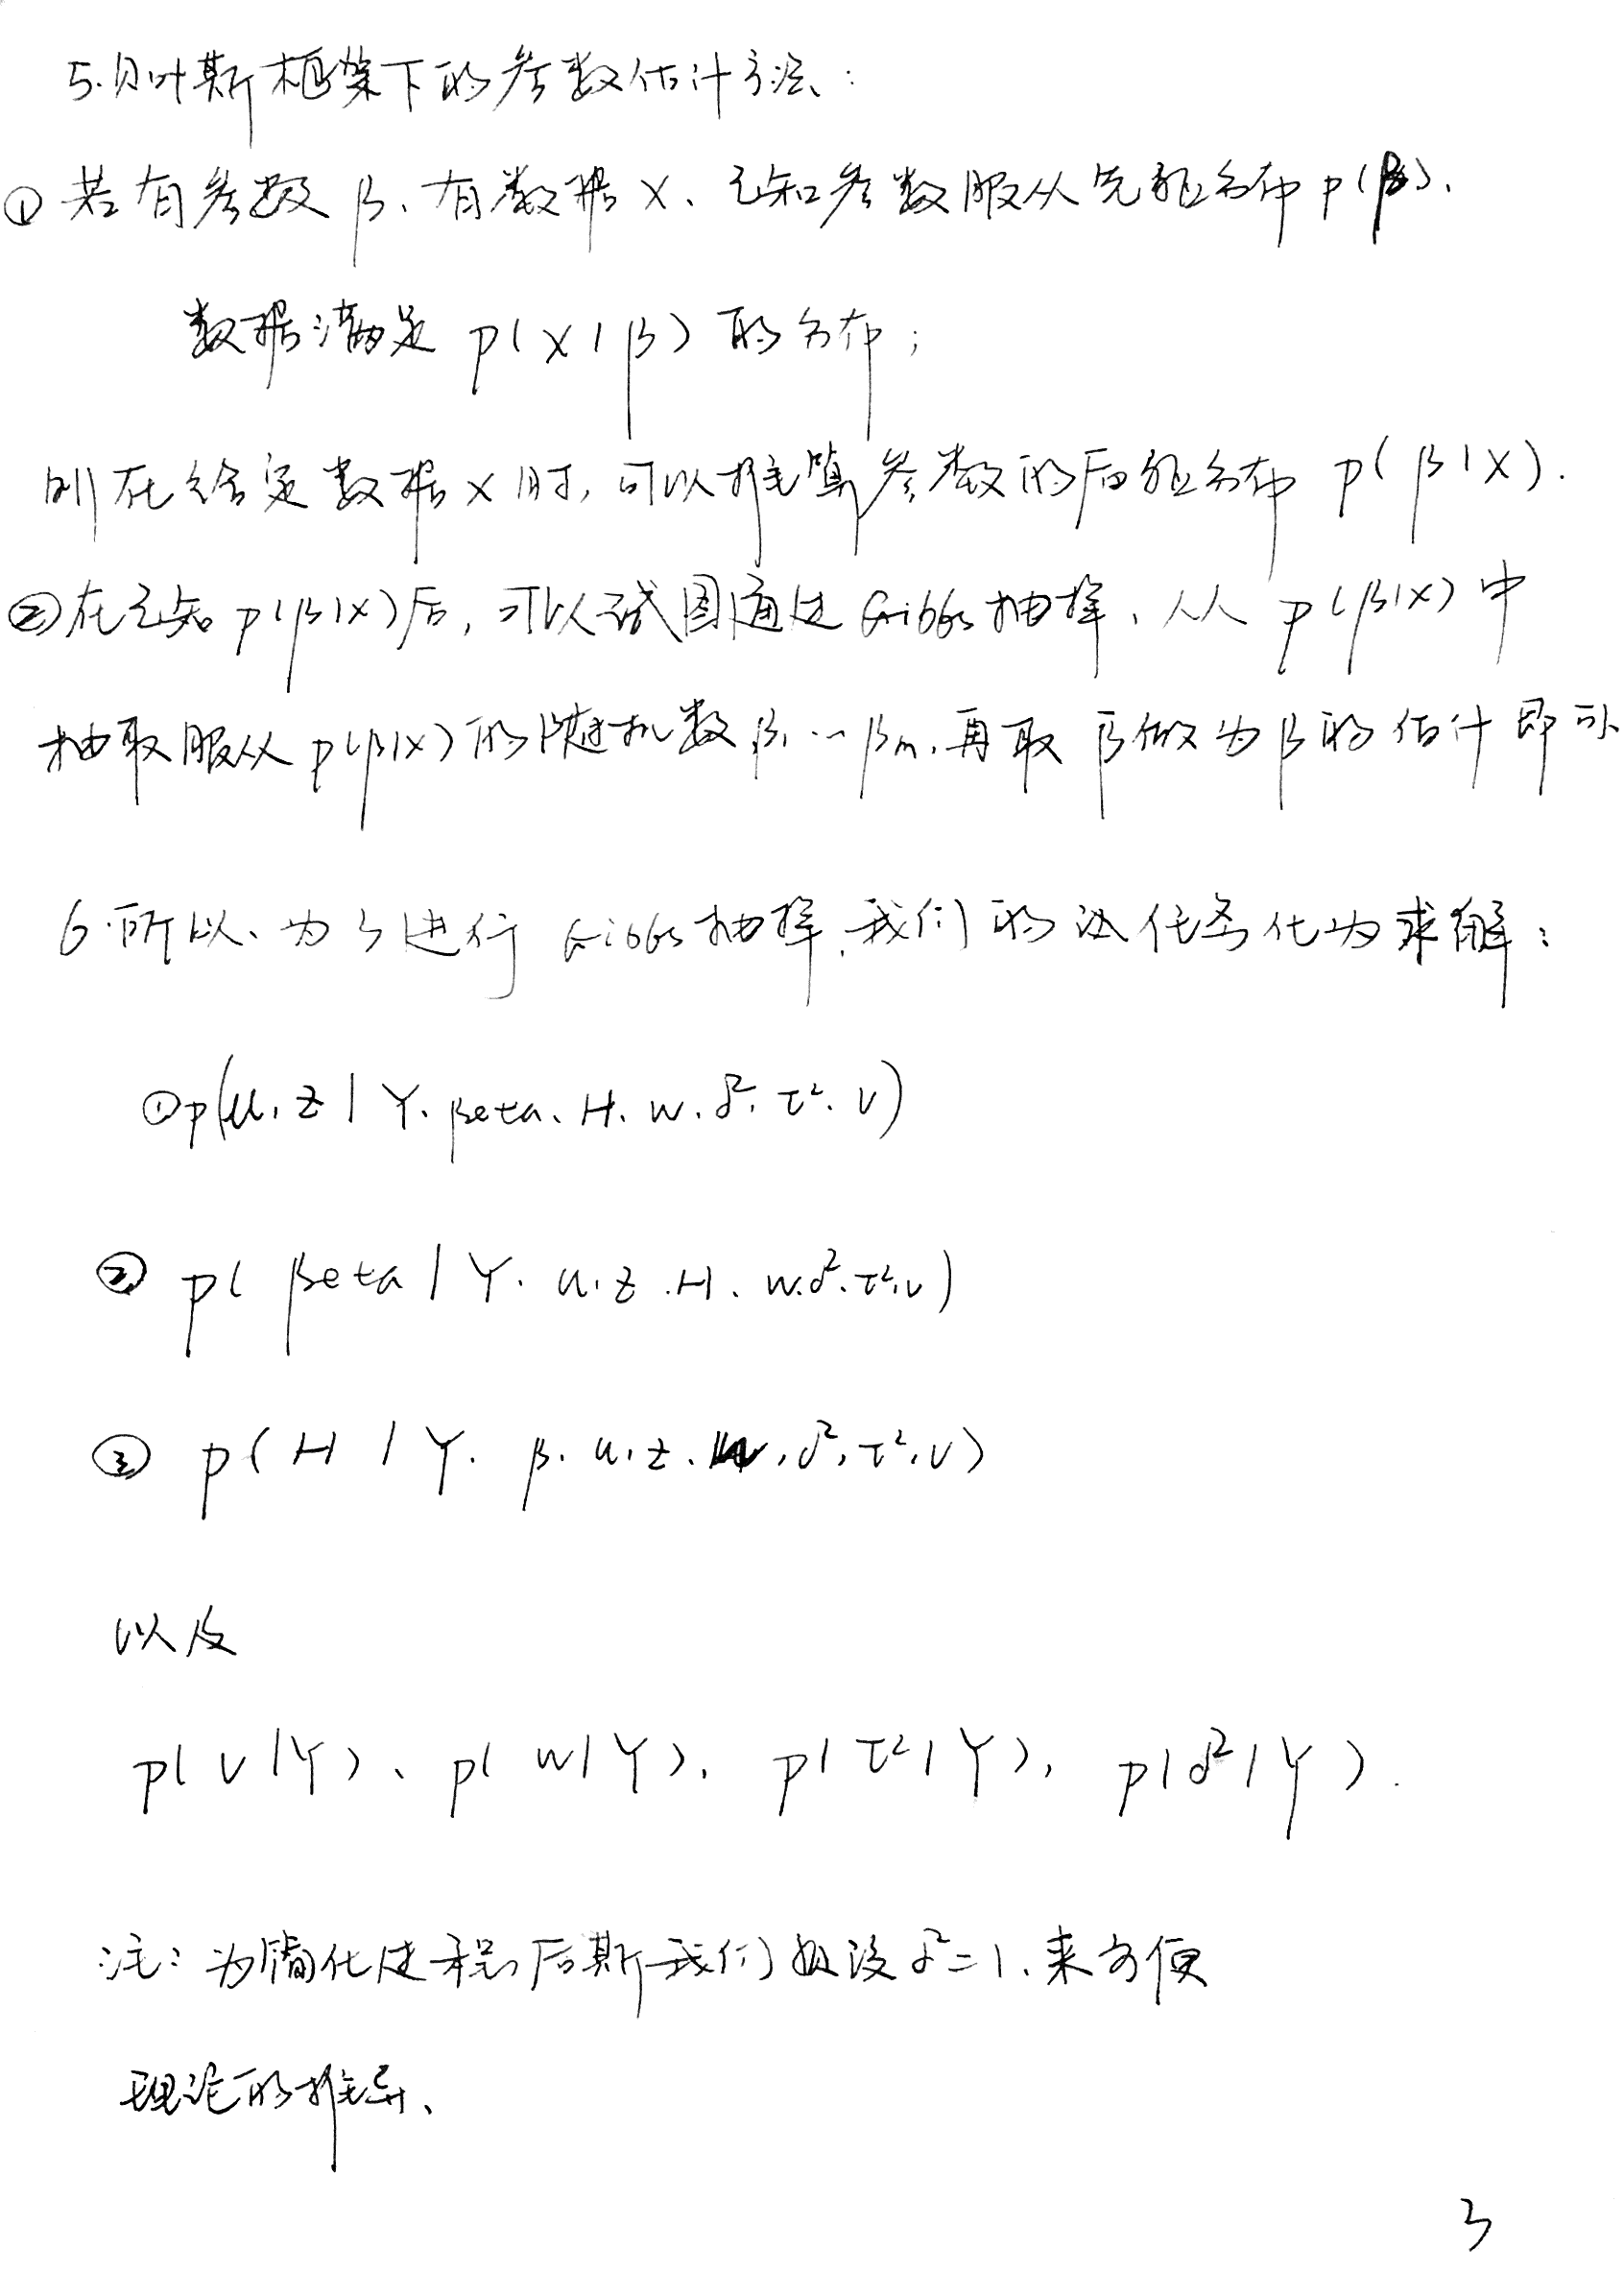 5.贝叶斯框架下的参数估计方法:
① 若有参数 β、有数据 X、已知参数服从先验分布 p(β).
数据满足 p(X|β) 的分布;
则在给定数据 X 时, 可以推算参数的后验分布 p(β|X).
②在已知 p(β|X)后, 可以试图通过 Gibbs 抽样、从 p(β|X) 中
抽取服从 p(β|X) 的随机数 β₁…βₘ, 再取 β̄ 做为 β 的估计即可
6.所以、为了进行 Gibbs 抽样, 我们的 任务化为求解:
①p(u, z | Y、Beta、H、w、δ²、τ²、v)
② p( Beta | Y. u, z .H、w.δ².τ², v)
③ p( H | Y. β. u, z. w, δ², τ², v)
以及
p( v |Y)、p( w| Y ), p( τ² | Y), p( δ² | Y ).
注: 为简化过程, 后 我们假设 δ²=1、来方便
理论的推导、
3